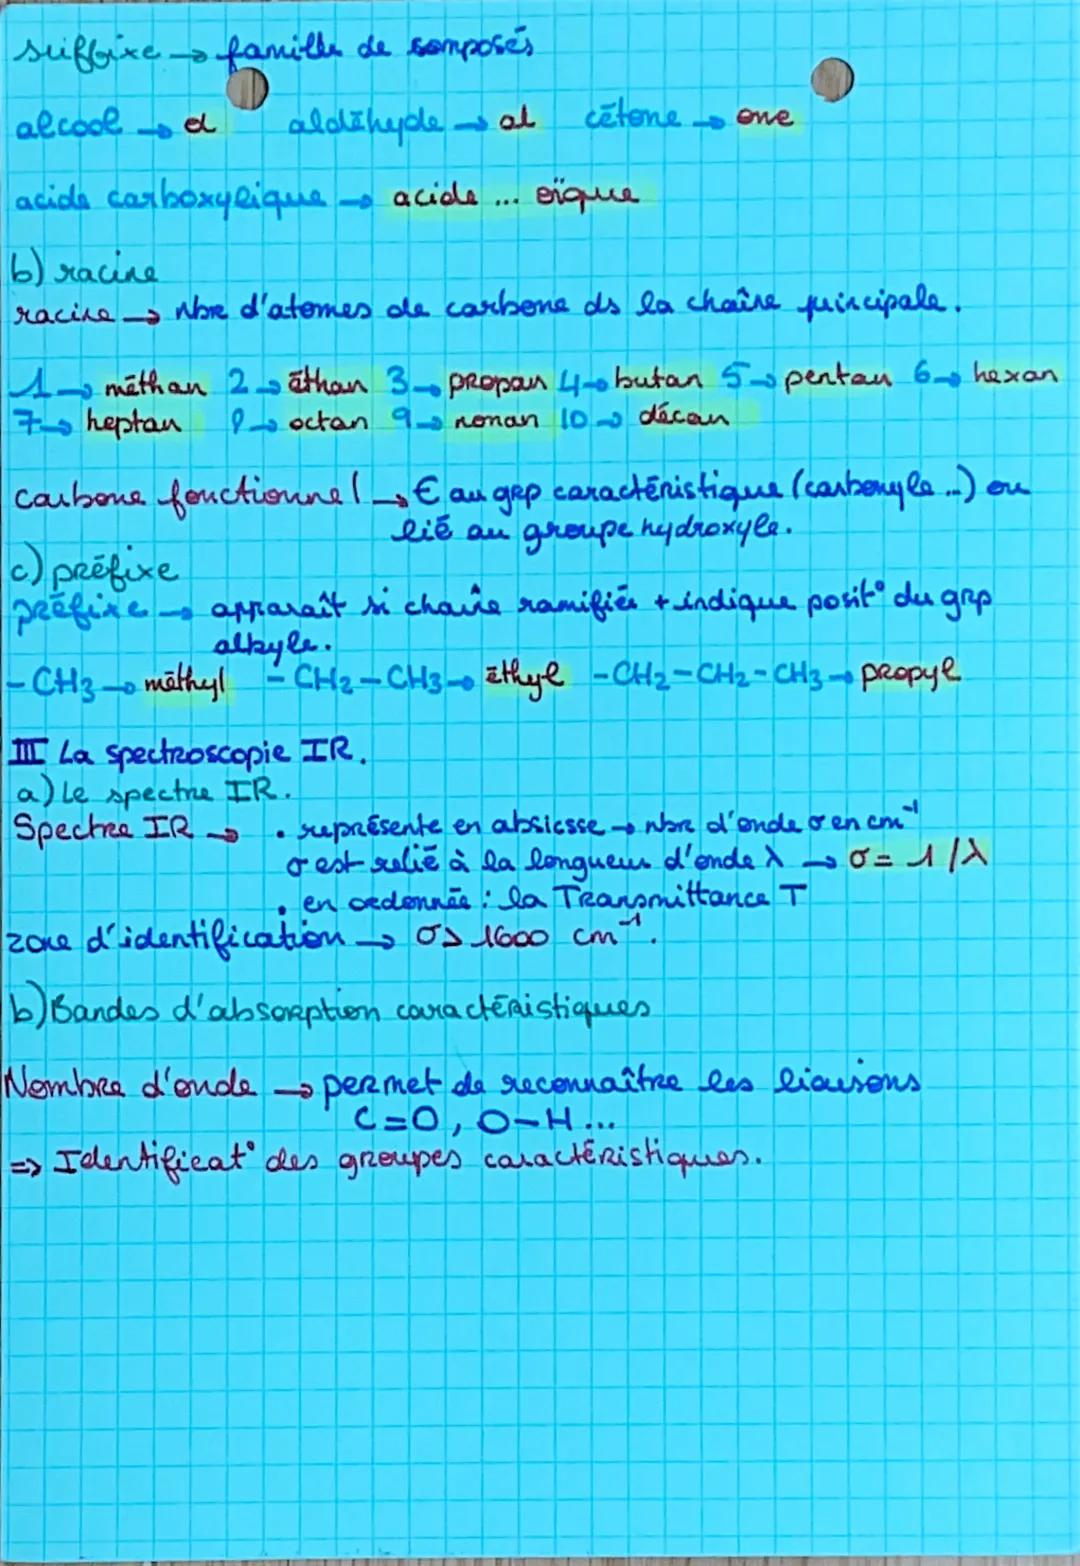 suffixe → famille de composés
alcool → ol aldéhyde → al cétone → one
acide carboxylique → acide ... oïque
b) racine
racine → nbre d'atomes de carbone ds la chaîne principale.
1 → méthan 2 → éthan 3 → propan 4 → butan 5 → pentan 6 → hexan
7 → heptan 8 → octan 9 → nonan 10 → décan
carbone fonctionnel → € au grp caractéristique (carbonyle ...) ou
lié au groupe hydroxyle.
c) préfixe
préfixe → apparaît si chaîne ramifiée + indique posit° du grp
alkyle.
- CH3 → méthyl - CH2 - CH3 → éthyl - CH2 - CH2 - CH3 → propyl
III La spectroscopie IR.
a) Le spectre IR.
Spectre IR → • représente en absicsse → nbr d'onde σ en cm⁻¹
σ est relié à la longueur d'onde λ → σ = 1/λ
• en ordonnée : la Transmittance T
zone d'identification → σ > 1600 cm⁻¹.
b) Bandes d'absorption caractéristiques
Nombre d'onde → permet de reconnaître les liaisons
C=O, O-H ...
=> Identificat° des groupes caractéristiques.